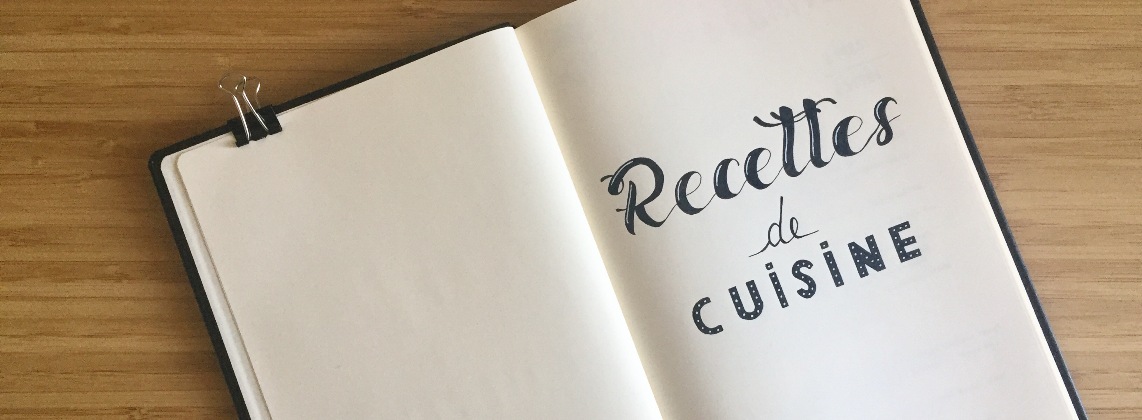 Recettes
de
CUiSiNE